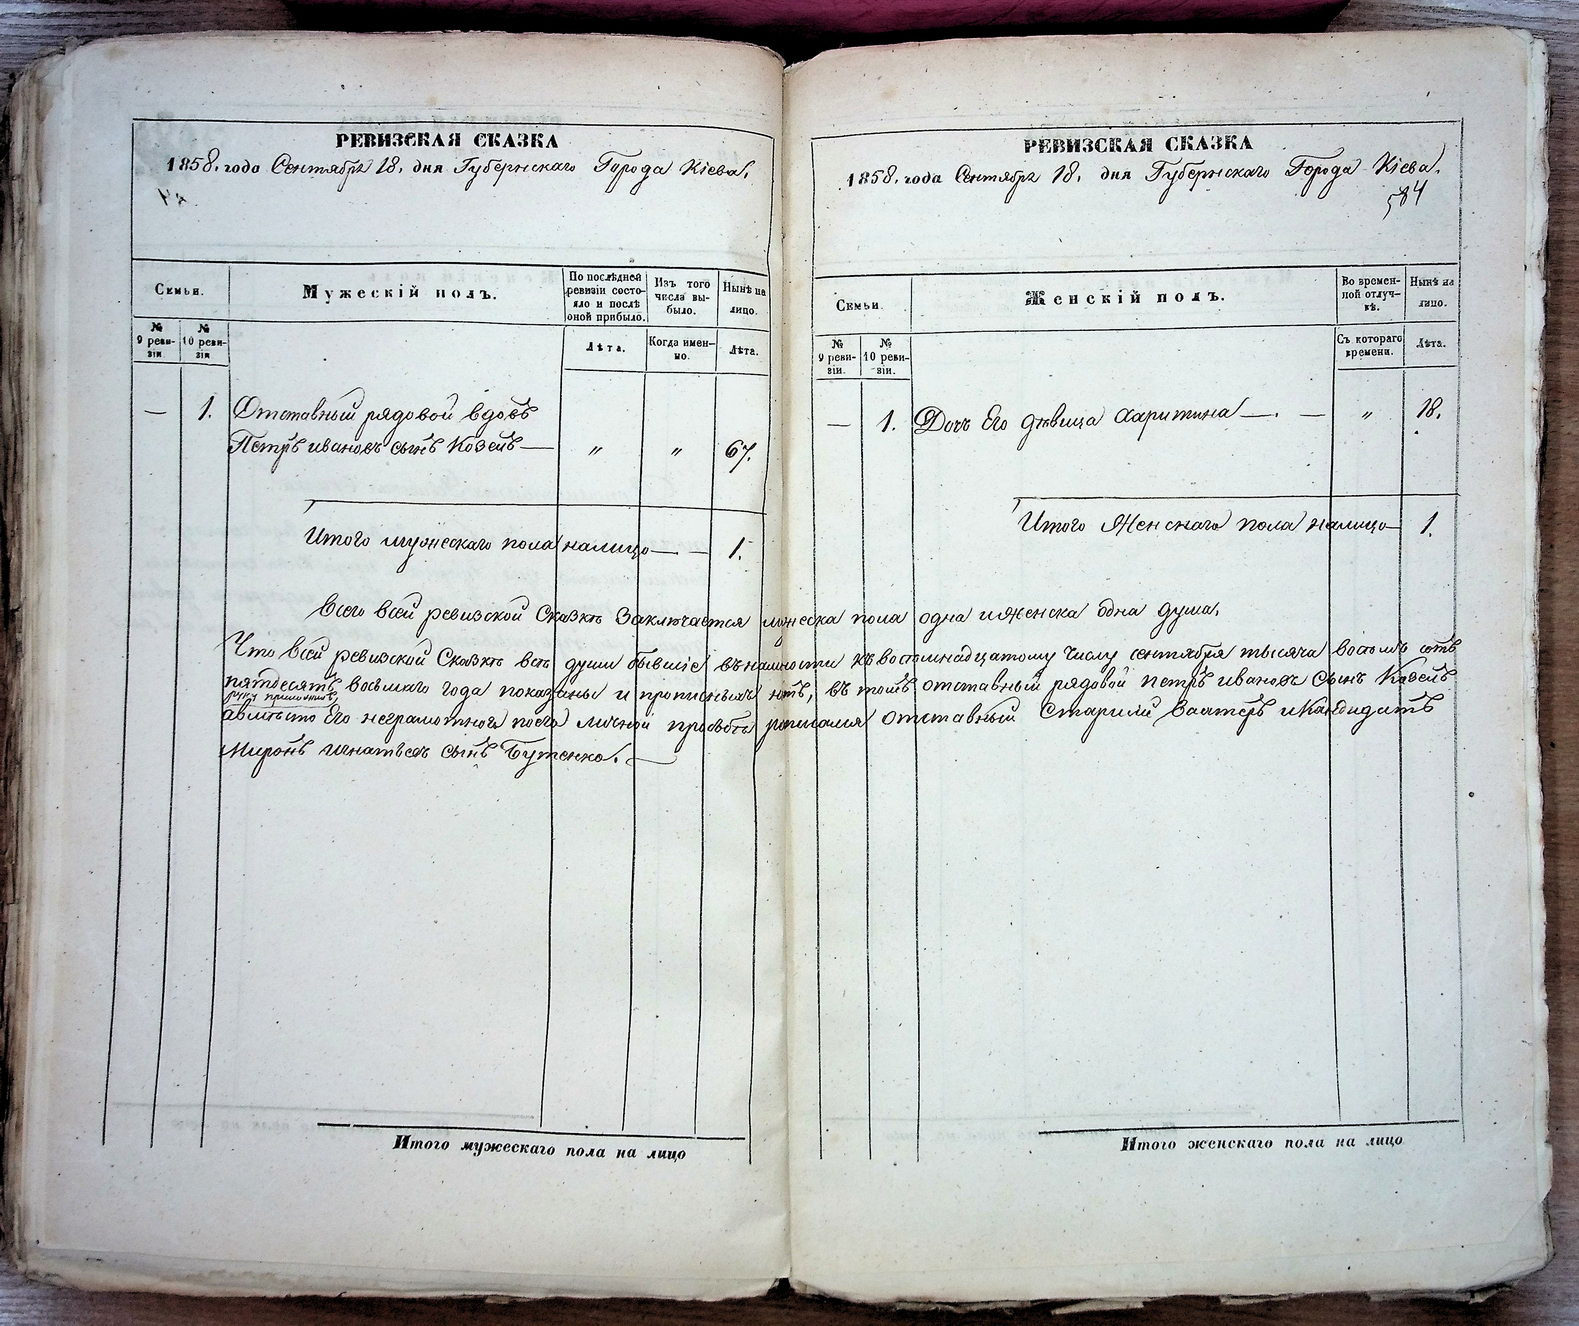 РЕВИЗСКАЯ СКАЗКА
1858. года Сентября 18. дня Губернскаго Города Кіева.
Семьи.
Мужескій полъ.
По послѣдней ревизіи состояло и послѣ оной прибыло.
Изъ того числа выбыло.
Нынѣ на лицо.
№ 9 ревизіи
№ 10 ревизіи
Лѣта.
Когда именно.
Лѣта.
— 1. Отставный рядовой вдовъ
Петръ Ивановъ сынъ Козелъ — " " 67.
Итого мужескаго пола налицо — — 1.
РЕВИЗСКАЯ СКАЗКА
1858. года Сентября 18. дня Губернскаго Города Кіева.
584
Семьи.
Женскій полъ.
Во временной отлучкѣ.
Нынѣ на лицо.
№ 9 ревизіи.
№ 10 ревизіи.
Съ котораго времени.
Лѣта.
— 1. Дочь Его дѣвица Харитина — . — " 18.
Итого Женскаго пола налицо — 1.
Всего всей ревизской Сказкѣ Заключается мужеска пола одна и Женска одна душа.
Что всей ревизской Сказкѣ всѣ души бывшіе въ наличности къ восемнадцатому Числу сентября тысяча восемь сотъ
пятдесятъ восьмаго года показаны и прописныхъ нѣтъ, въ томъ отставный рядовой Петръ Ивановъ Сынъ Козелъ
руку приложилъ
а вместо Его неграмотнаго по его личной прозьбѣ росписался Отставный Старшій Вахтеръ и Кандидатъ
Миронъ Игнатьевъ сынъ Бутенко. —
Итого мужескаго пола на лицо
Итого женскаго пола на лицо